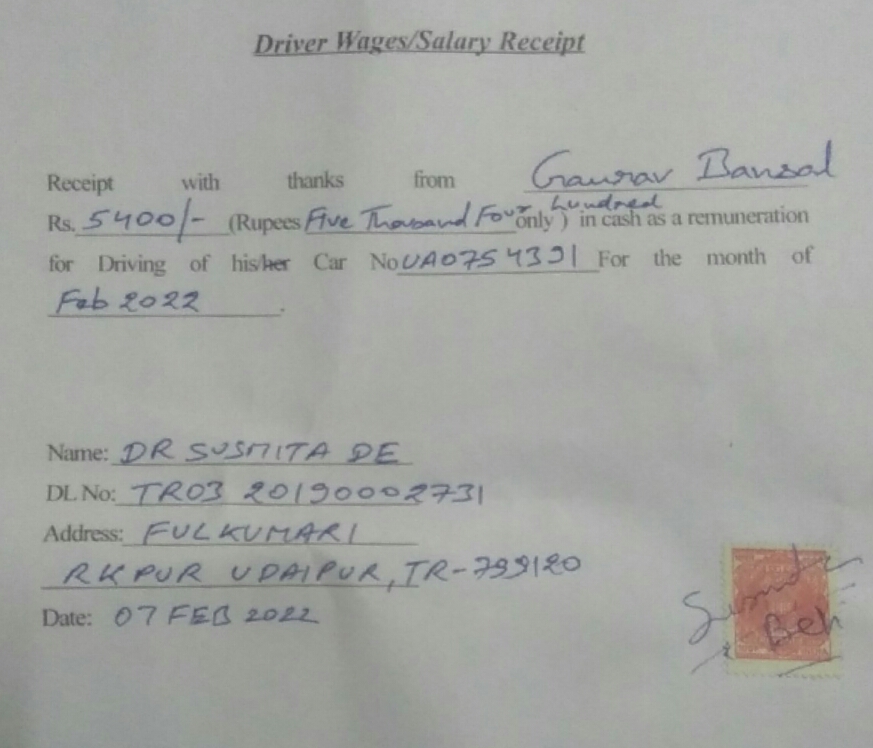 Driver Wages/Salary Receipt
Receipt with thanks from Gaurav Bansal
Rs. 5400/- (Rupees Five Thousand Four hundred only) in cash as a remuneration
for Driving of his/her Car No UA0754391 For the month of
Feb 2022.
Name: DR SUSMITA DE
DL No: TR03 20190002731
Address: FULKUMARI
RKPUR UDAIPUR, TR-799120
Date: 07 FEB 2022